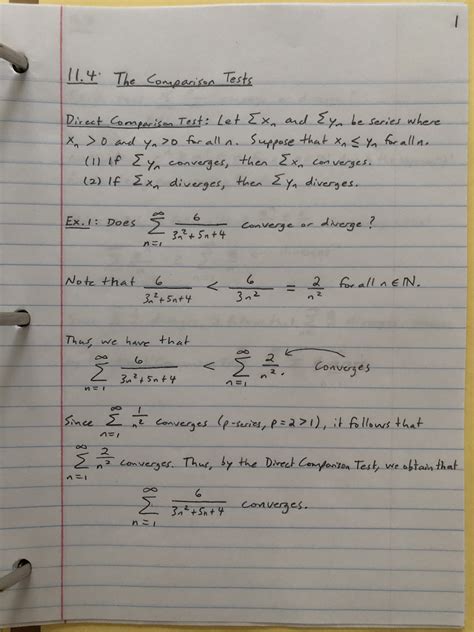 1
11.4: The Comparison Tests
Direct Comparison Test: Let Σxₙ and Σyₙ be series where
xₙ > 0 and yₙ > 0 for all n. Suppose that xₙ ≤ yₙ for all n.
(1) If Σyₙ converges, then Σxₙ converges.
(2) If Σxₙ diverges, then Σyₙ diverges.
Ex.1: Does ∑_{n=1}^{∞} 6/(3n²+5n+4) converge or diverge?
Note that 6/(3n²+5n+4) < 6/(3n²) = 2/n² for all n∈ℕ.
Thus, we have that
∑_{n=1}^{∞} 6/(3n²+5n+4) < ∑_{n=1}^{∞} 2/n². Converges
Since ∑_{n=1}^{∞} 1/n² converges (p-series, p=2>1), it follows that
∑_{n=1}^{∞} 2/n² converges. Thus, by the Direct Comparison Test, we obtain that
∑_{n=1}^{∞} 6/(3n²+5n+4) converges.